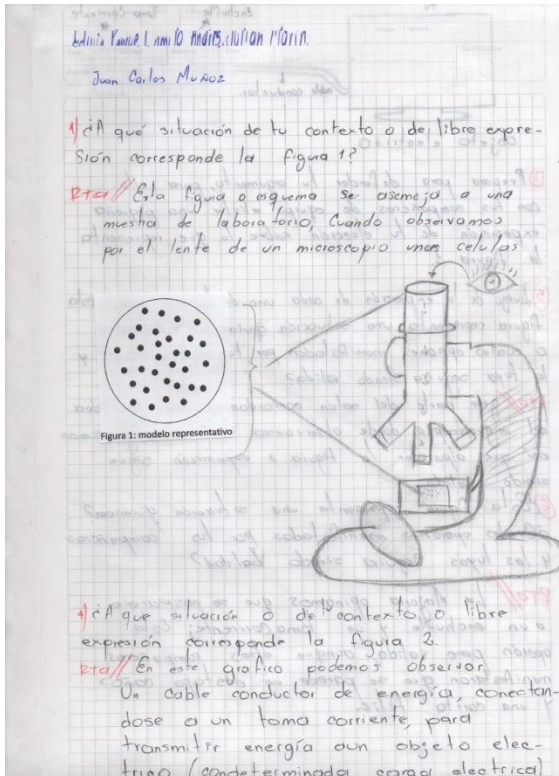 Juan Carlos Muñoz
1) ¿A qué situación de tu contexto o de libre expre-
sión corresponde la figura 1?
Rta// Esta figura o esquema se asemeja a una
muestra de laboratorio, Cuando observamos
por el lente de un microscopio unas celulas
Figura 1: modelo representativo
4) ¿A que situación o de tu contexto, o libre
expresión corresponde la figura 2.
Rta// En este grafico podemos observar
Un cable conductor de energía, conectan-
dose a un toma corriente, para
transmitir energía a un objeto elec-
trico (con determinada carga electrica)